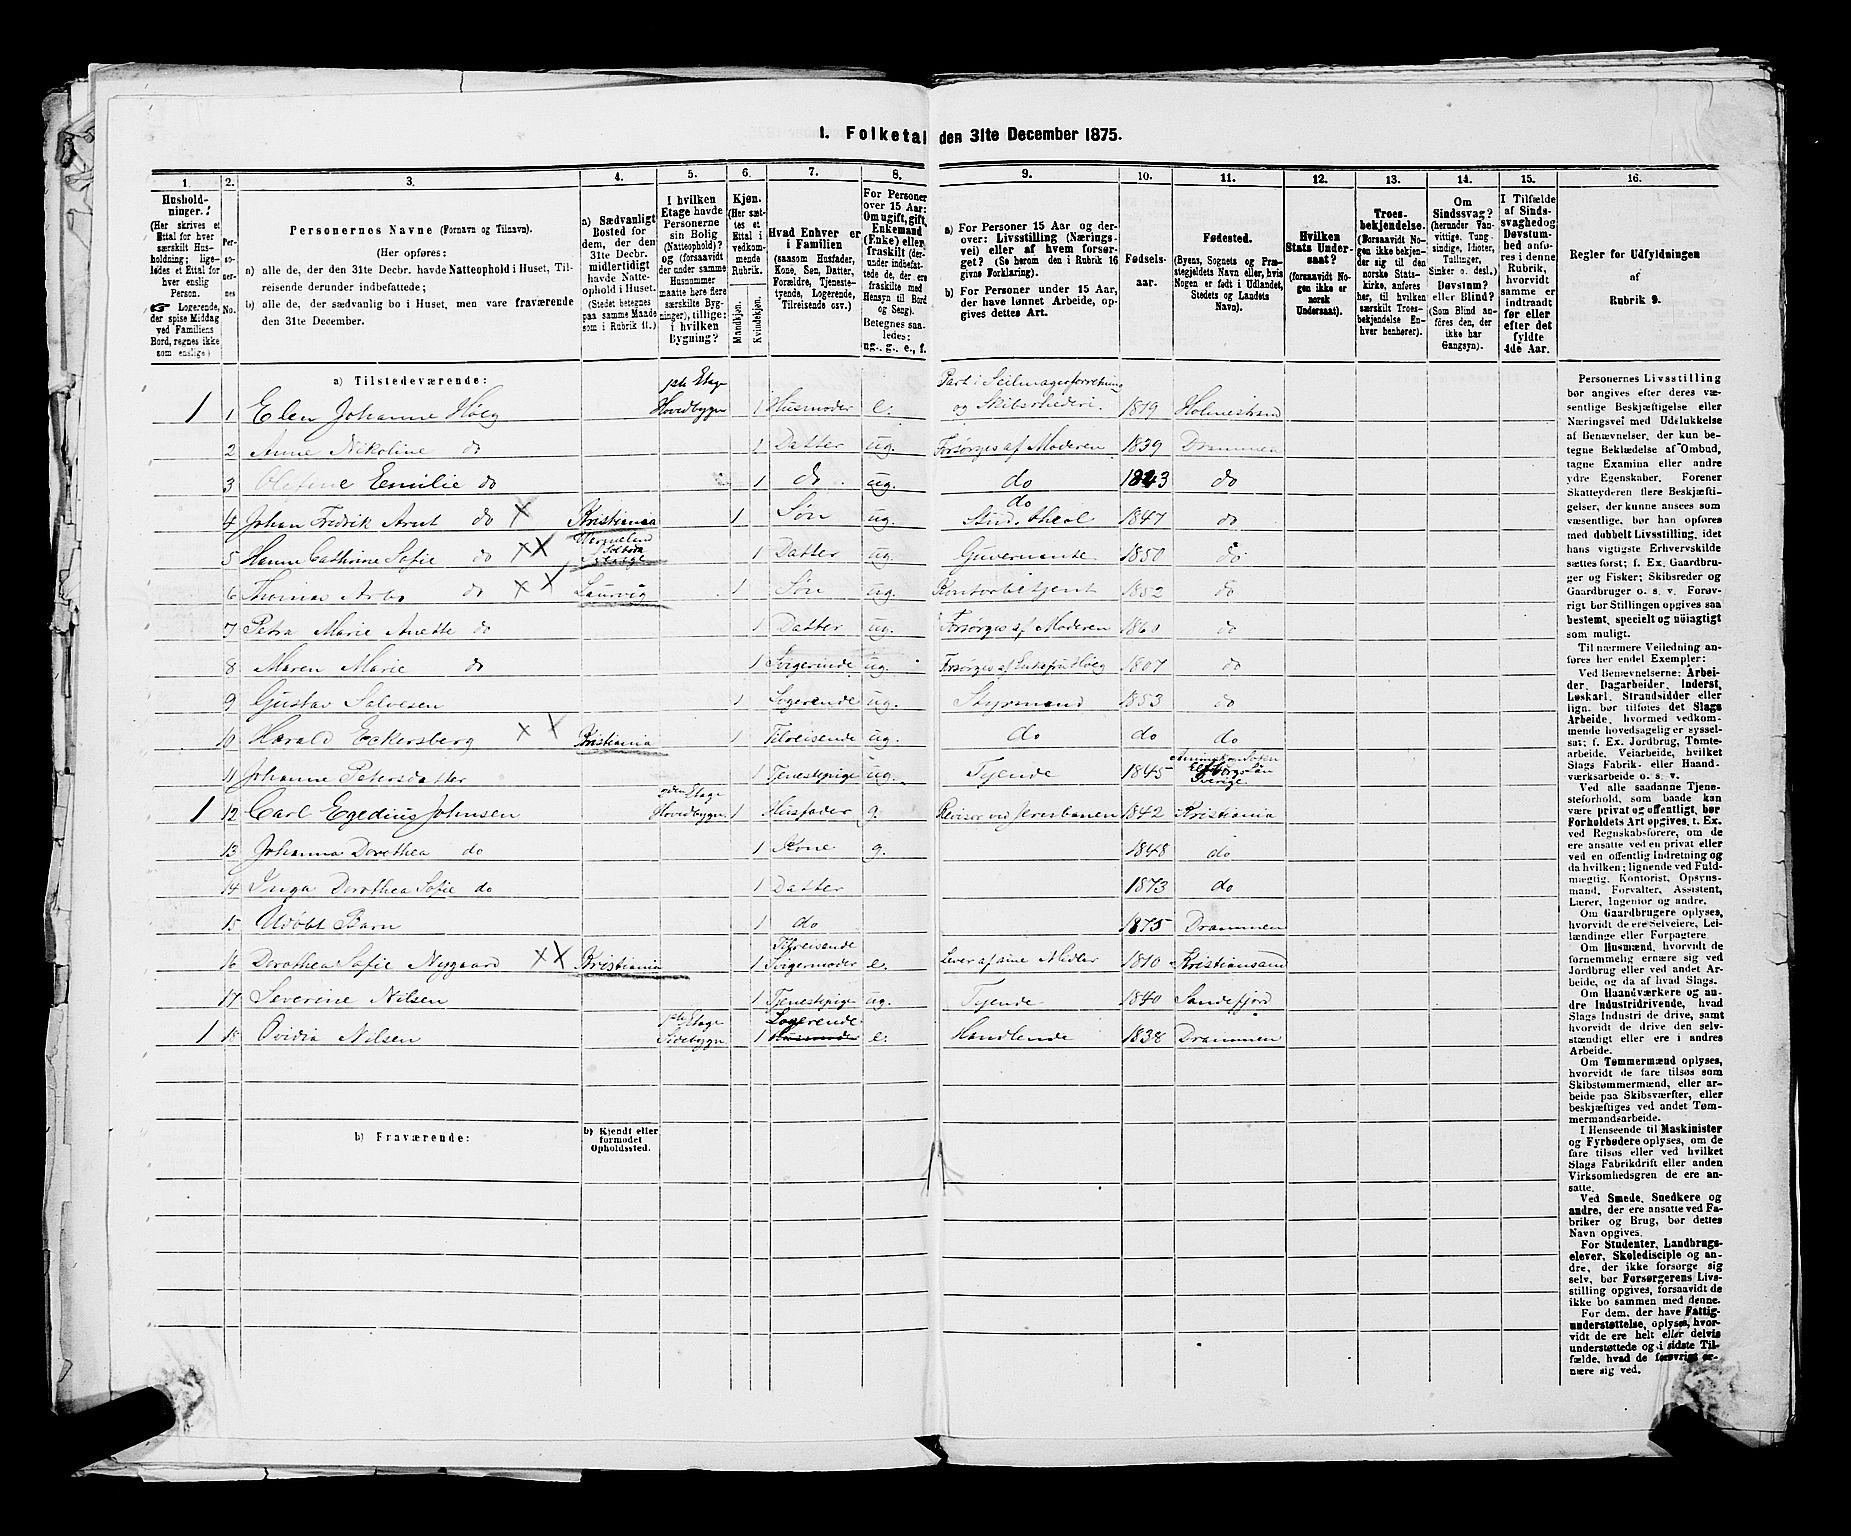 I. Folketal den 31te December 1875.
1. 2. 3. 4. 5. 6. 7. 8. 9. 10. 11. 12. 13. 14. 15. 16.
Hushold-
ninger.
(Her skrives et
Ettal for hver
særskilt Hus-
holdning; lige-
ledes et Ettal for
hver enslig
Person.
Logerende,
der spise Middag
ved Familiens
Bord, regnes ikke
som enslige)
Per-
so-
ner-
nes
No.
Personernes Navne (Fornavn og Tilnavn).
(Her opføres:
a) alle de, der den 31te Decbr. havde Natteophold i Huset, Til-
reisende derunder indbefattede;
b) alle de, der sædvanlig bo i Huset, men vare fraværende
den 31te December.
a) Sædvanligt
Bosted for
dem, der den
31te Decbr.
midlertidigt
havde Natte-
ophold i Huset.
(Stedet betegnes
paa samme Maade
som i Rubrik 11.)
I hvilken
Etage havde
Personerne
sin Bolig
(Natteophold)?
og (forsaavidt
der under samme
Husnummer
maatte høre flere
særskilte Byg-
ninger), tillige:
i hvilken
Bygning?
Kjøn.
(Her sæt-
tes et
Ettal i
vedkom-
mende
Rubrik.
Mandkjøn.
Kvindekjøn.
Hvad Enhver er
i Familien
(saasom Husfader,
Kone, Søn, Datter,
Forældre, Tjeneste-
tyende, Logerende,
Tilreisende osv.)
For Personer
over 15 Aar:
Om ugift, gift,
Enkemand
(Enke) eller
fraskilt (der-
under indbefat-
tede de, der ere
fraskilte med
Hensyn til Bord
og Seng).
Betegnes saa-
ledes:
ug., g., e., f.
a) For Personer 15 Aar og der-
over: Livsstilling (Nærings-
vei) eller af hvem forsør-
get? (Se herom den i Rubrik 16
givne Forklaring).
b) For Personer under 15 Aar,
der have lønnet Arbeide, op-
gives dettes Art.
Fødsels-
aar.
Fødested.
(Byens, Sognets og Præ-
stegjeldets Navn eller, hvis
Nogen er født i Udlandet,
Stedets og Landets
Navn).
Hvilken
Stats Under-
saat?
(forsaavidt No-
gen ikke er
norsk
Undersaat).
Troes-
bekjendelse.
(Forsaavidt No-
gen ikke bekjen-
der sig til den
norske Stats-
kirke, anføres
her, til hvilken
særskilt Troes-
bekjendelse En-
hver henhører).
Om
Sindssvag?
(herunder Van-
vittige, Tung-
sindige, Idioter,
Tullinger,
Sinker o. desl.)
Døvstum?
eller Blind?
(Som Blind an-
føres den, der
ikke har
Gangsyn).
I Tilfælde
af Sinds-
svaghed og
Døvstum-
hed anfø-
res i denne
Rubrik,
hvorvidt
samme er
indtraadt
før eller
efter det
fyldte
4de Aar.
Regler for Udfyldningen
af
Rubrik 9.
a) Tilstedeværende:
1 1 Elen Johanne Höeg 1ste Etage Hovedbygn 1 Husmoder e. Part i Seilmagerforretning og Skibsrhederi. 1819 Holmestrand
2 Anne Nikoline do 1 Datter ug. Forsørges af Moderen 1839 Drammen
3 Olefine Emilie do 1 do ug. do 1843 do
4 Johan Fredrik Arnt do X Kristiania 1 Søn ug. do Stud. theol 1847 do
5 Hanne Cathrine Sofie do XX 1 Datter ug Guvernante 1850 do
6 Thomas Arbo do XX Laurvig 1 Søn ug. Kontorbetjent 1852 do
7 Petra Marie Anette do 1 Datter ug. Forsørges af Moderen 1860 do
8 Maren Marie do 1 Svigerinde ug. Forsørges af Enkefru Höeg 1807 do
9 Gustav Salvesen 1 Logerende ug. Styrmand 1853 do
10 Harald Eckersberg XX Kristiania 1 Tilreisende ug. do do do
11 Johanne Petersdatter 1 Tjenestepige ug. Tjende 1845 Sverige
1 12 Carl Egedius Johnsen 2den Etage Hovedbygn. 1 Husfader g. Revisor ved Jernbanen 1842 Kristiania
13 Johanna Dorethea do 1 Kone g. 1848 do
14 Inga Dorothea Sofie do 1 Datter 1873 do
15 Udöbt Barn 1 do 1875 Drammen
16 Dorothea Sofie Nygaard XX Kristiania 1 Tilreisende Svigermoder e. Lever af sine Midler 1810 Kristiansand
17 Severine Nilsen 1 Tjenestepige ug. Tjende 1840 Sandefjord
1 18 Ovidia Nilsen 1ste Etage Sidebygn 1 Logerende Husmoder e. Handlende 1838 Drammen
b) Fraværende:
b) Kjendt eller
formodet
Opholdssted.
Personernes Livsstilling
bør angives efter deres væ-
sentlige Beskjæftigelse eller
Næringsvei med Udelukkelse
af Benævnelser, der kun be-
tegne Beklædelse af Ombud,
tagne Examina eller andre
ydre Egenskaber. Forener
Skatteyderen flere Beskjæfti-
gelser, der kunne ansees som
væsentlige, bør han opføres
med dobbelt Livsstilling, idet
hans vigtigste Erhvervskilde
sættes først; f. Ex. Gaardbru-
ger og Fisker; Skibsreder og
Gaardbruger o. s. v. Forøv-
rigt bør Stillingen opgives saa
bestemt, specielt og nøiagtigt
som muligt.
Til nærmere Veiledning an-
føres her endel Exempler:
Ved Benævnelserne: Arbei-
der, Dagarbeider, Inderst,
Løskarl, Strandsidder eller
lign. bør tilføies det Slags
Arbeide, hvormed vedkom-
mende hovedsagelig er syssel-
sat; f. Ex. Jordbrug, Tømte-
arbeide, Veiarbeide, hvilket
Slags Fabrik- eller Haand-
værksarbeide o. s. v.
Ved alle saadanne Tjene-
steforhold, som baade kan
være privat og offentligt, bør
Forholdets Art opgives, t. Ex.
ved Regnskabsførere, om de
ere ansatte ved en privat eller
ved en offentlig Indretning og
da hvilken; lignende ved Fuld-
mægtig, Kontorist, Opsyns-
mand, Forvalter, Assistent,
Lærer, Ingeniør og andre.
Om Gaardbrugere oplyses,
hvorvidt de ere Selveiere, Lei-
lændinge eller Forpagtere.
Om Husmænd, hvorvidt de
fornemmelig ernære sig ved
Jordbrug eller ved andet Ar-
beide, og da af hvad Slags.
Om Haandværkere og an-
dre Industridrivende, hvad
Slags Industri de drive, samt
hvorvidt de drive den selv-
stændigt eller ere i andres
Arbeide.
Om Tømmermænd oplyses,
hvorvidt de fare tilsøs som
Skibstømmermænd, eller ar-
beide paa Skibsværfter, eller
beskjæftiges ved andet Tøm-
mermandsarbeide.
I Henseende til Maskinister
og Fyrbødere oplyses, om de
fare tilsøs eller ved hvilket
Slags Fabrikdrift eller anden
Virksomhedsgren de ere an-
satte.
Ved Smede, Snedkere og
andre, der ere ansatte ved Fa-
briker og Brug, bør dettes
Navn opgives.
For Studenter, Landbrugs-
elever, Skoledisciple og an-
dre, der ikke forsørge sig
selv, bør Forsørgerens Livs-
stilling opgives, forsaavidt de
ikke bo sammen med denne.
For dem, der have Fattig-
understøttelse, oplyses, hvor-
vidt de ere helt eller delvis
understøttede og i sidste Til-
fælde, hvad de forøvrigt er-
nære sig ved.